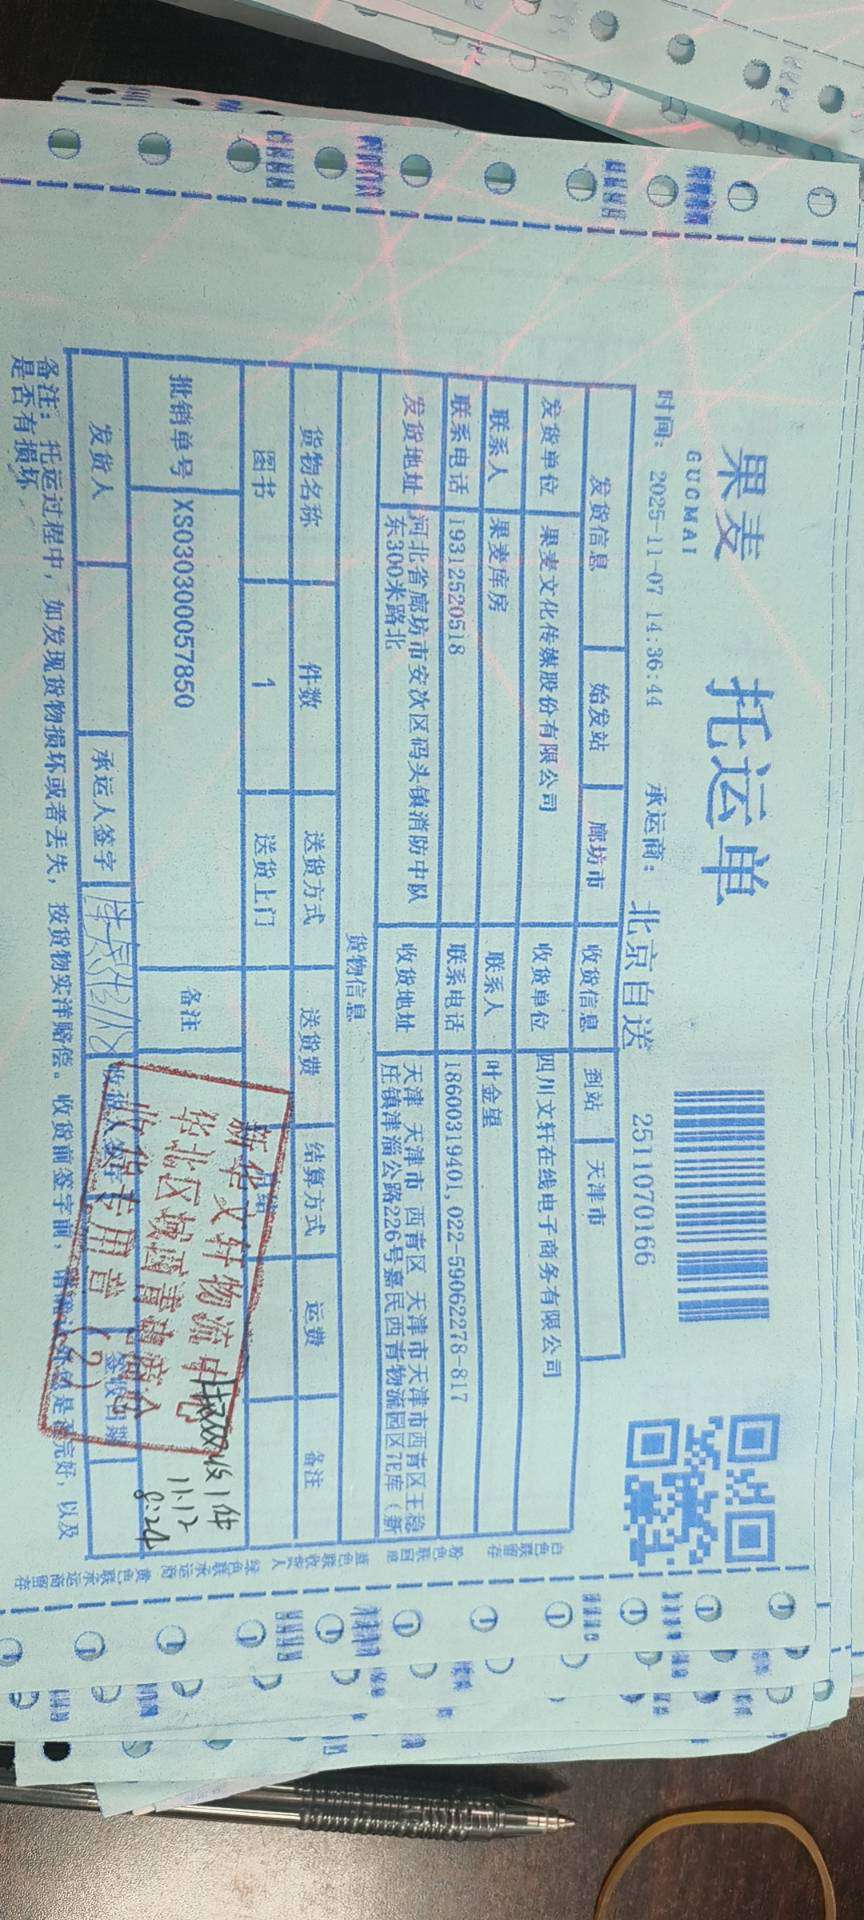 果麦
GUOMAI
托运单
2511070166
时间: 2025-11-07 14:36:44 承运商: 北京自送
发货信息 始发站 廊坊市 收货信息 到站 天津市
发货单位 果麦文化传媒股份有限公司 收货单位 四川文轩在线电子商务有限公司
联系人 果麦库房 联系人 叶金望
联系电话 19312520518 联系电话 18600319401,022-59062278-817
发货地址 河北省廊坊市安次区码头镇消防中队东300米路北 收货地址 天津 天津市 西青区 天津市天津市西青区王稳庄镇津淄公路226号嘉民西青物流园区7E库（新
货物信息
货物名称 件数 送货方式 送货费 结算方式 运费 备注
图书 1 送货上门
批销单号 XS030300057850 备注
发货人 承运人签字 收货人签字 签收日期
备注: 托运过程中, 如发现货物损坏或者丢失, 按货物实洋赔偿。收货前签字前, 是否完好, 以及
是否有损坏
新华文轩物流
华北区域西青
收货专用章 (2)
收1件
11.12
8:24
白色联留存 粉色联回单 蓝色联收货人 绿色联承运商 黄色联承运商留存